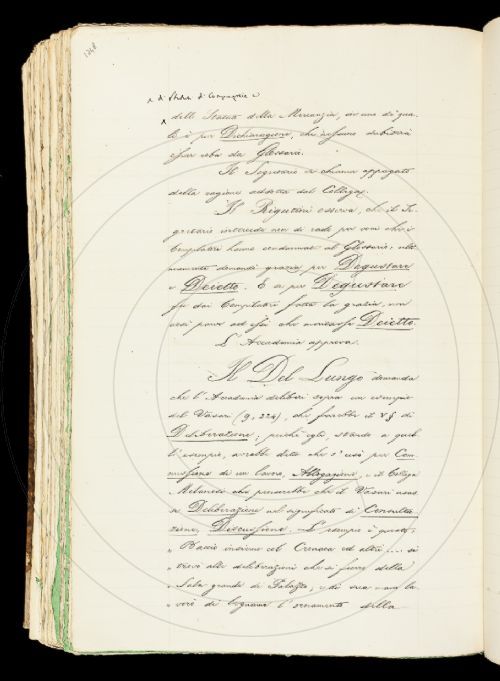 1248
e di Statuti di Compagnie e
dello Statuto della Mercanzia, in uno de' qua-
li è per Dichiarazione, che nessuno dubiterà
esser roba da Glossario.
Il Segretario si chiama appagato
della ragione addotta dal Collega.
Il Rigutini osserva, che il Se-
gretario intercede non di rado per voci che i
Compilatori hanno condannate al Glossario: ulti-
mamente domandò grazia per Degustare
e Deietto. E se per Degustare
fu dai Compilatori fatta la grazia, non
così parve ad essi che meritasse Deietto.
L'Accademia approva.
Il Del Lungo domanda
che l'Accademia deliberi sopra un esempio
del Vasari (9, 224), che farebbe il V § di
Deliberazione; poichè egli, stando a quel-
l'esempio, avrebbe detto che s'usò per Com-
missione di un lavoro, Allogagione, e il Collega
Milanesi che penserebbe che il Vasari usas-
se Deliberazione nel significato di Consulta-
zione, Discussione. L'esempio è questo:
" Baccio insieme col Cronaca ed altri .... si
" trovò alle deliberazioni che si fecero della
" Sala grande di Palazzo, e di sua man la-
" vorò di legname l'ornamento della